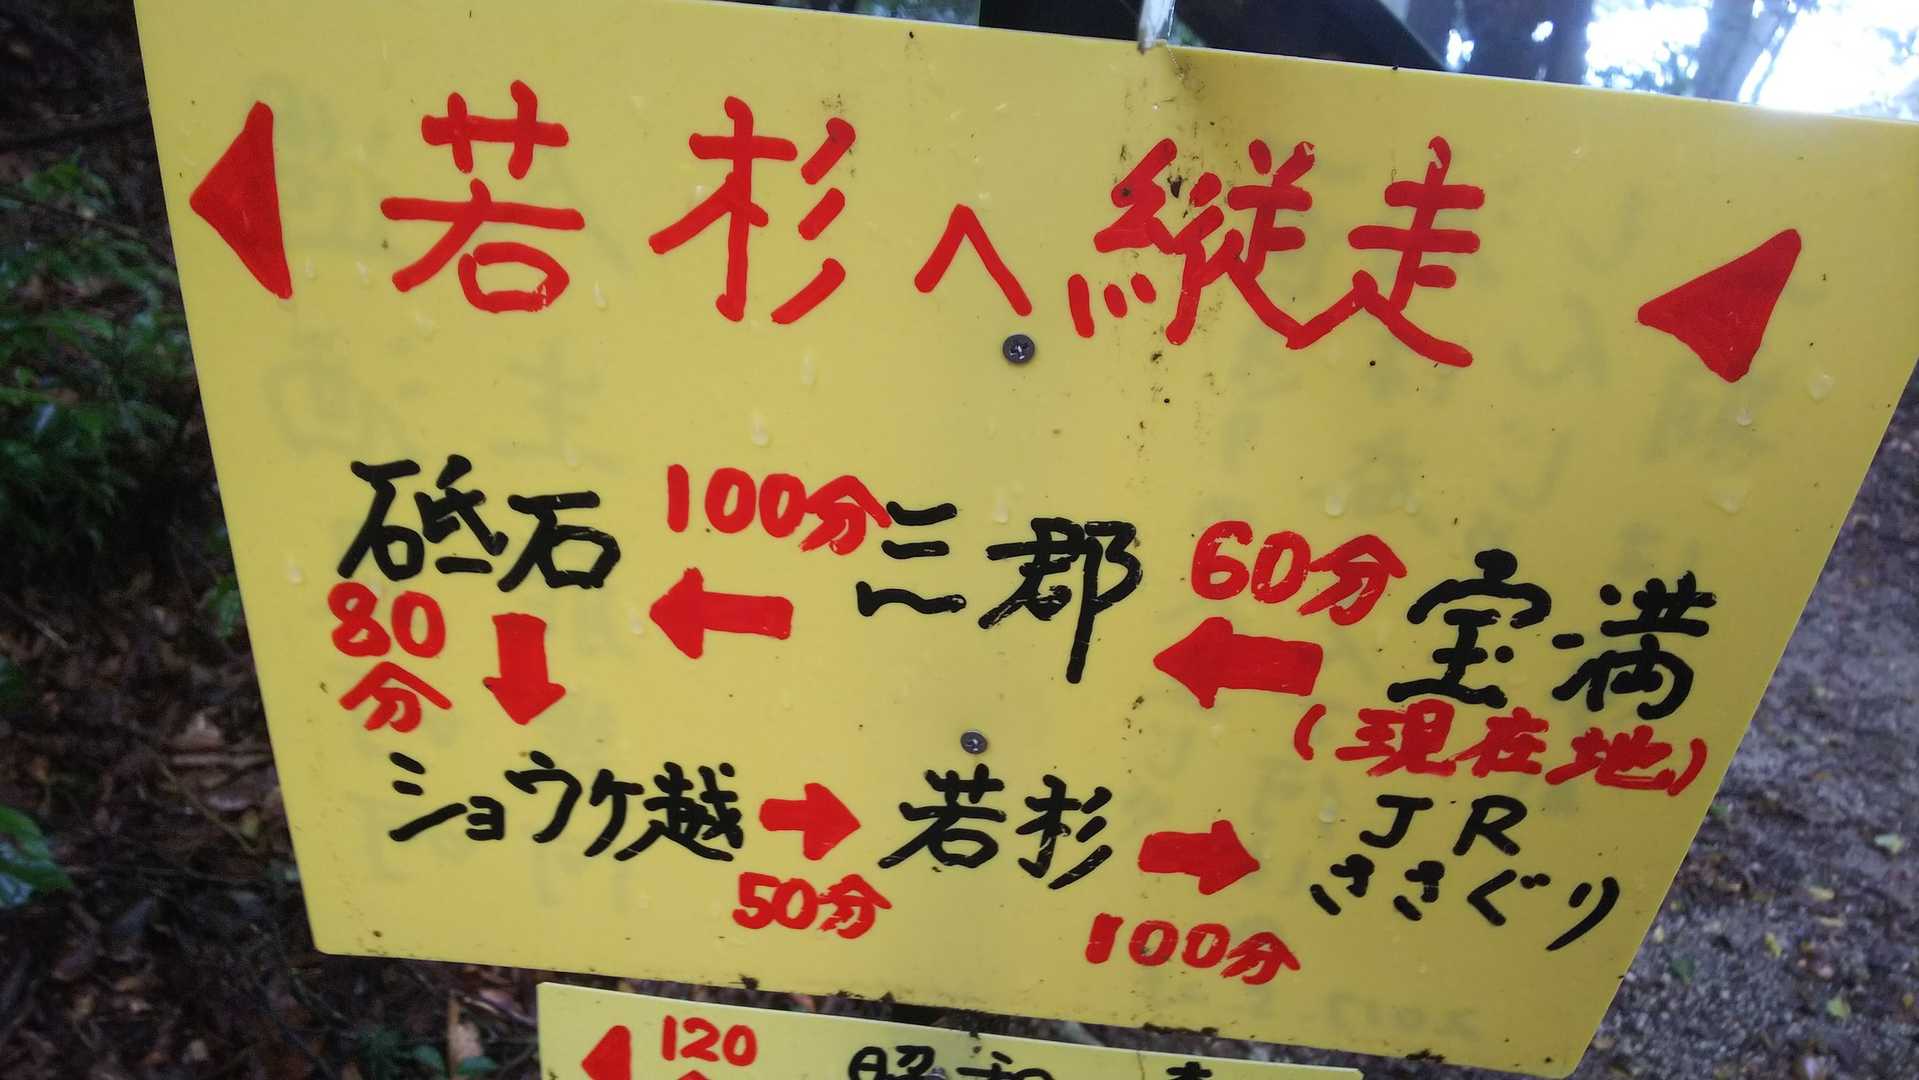 若杉へ縦走
砥石 100分 三郡 60分 宝満
80分
(現在地)
ショウケ越 若杉 JR
ささぐり
50分 100分
120